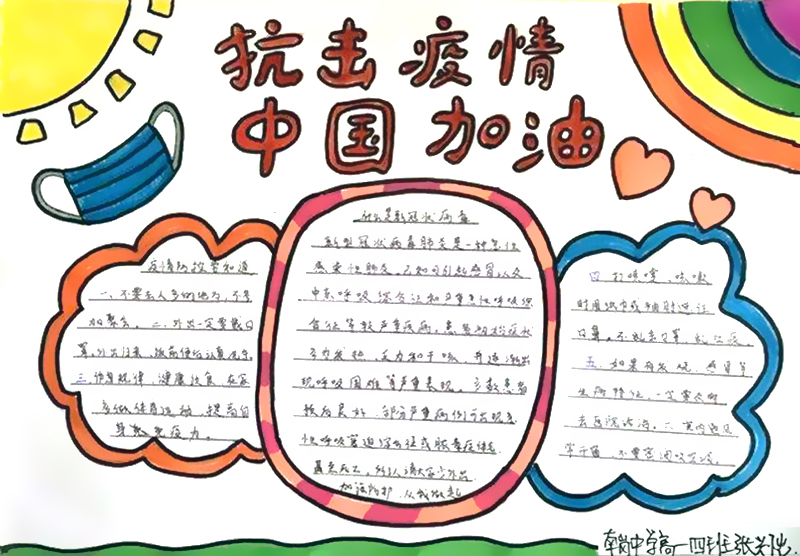 抗击疫情
中国加油
什么是新冠状病毒
新型冠状病毒肺炎是一种急性
感染性肺炎，已知可引起感冒以及
中东呼吸综合征和严重急性呼吸综
合征等较严重疾病，患者初始症状
多为发热、乏力和干咳，并逐渐出
现呼吸困难等严重表现。多数患者
预后良好，部分严重病例可出现急
性呼吸窘迫综合征或脓毒症休克
甚至死亡。所以请大家少外出
加强防护，从我做起
疫情防控要知道
一、不要去人多的地方，不参
加聚会。二、外出一定要戴口
罩，外出归来，饭前便后认真洗手
三、作息规律，健康饮食，在家
多做体育运动，提高自
身免疫力。
四、打喷嚏、咳嗽
时用纸巾或手肘遮住
口鼻，不乱丢口罩，乱吐痰。
五、如果有发烧、感冒等
生病特征，一定要及时
去医院